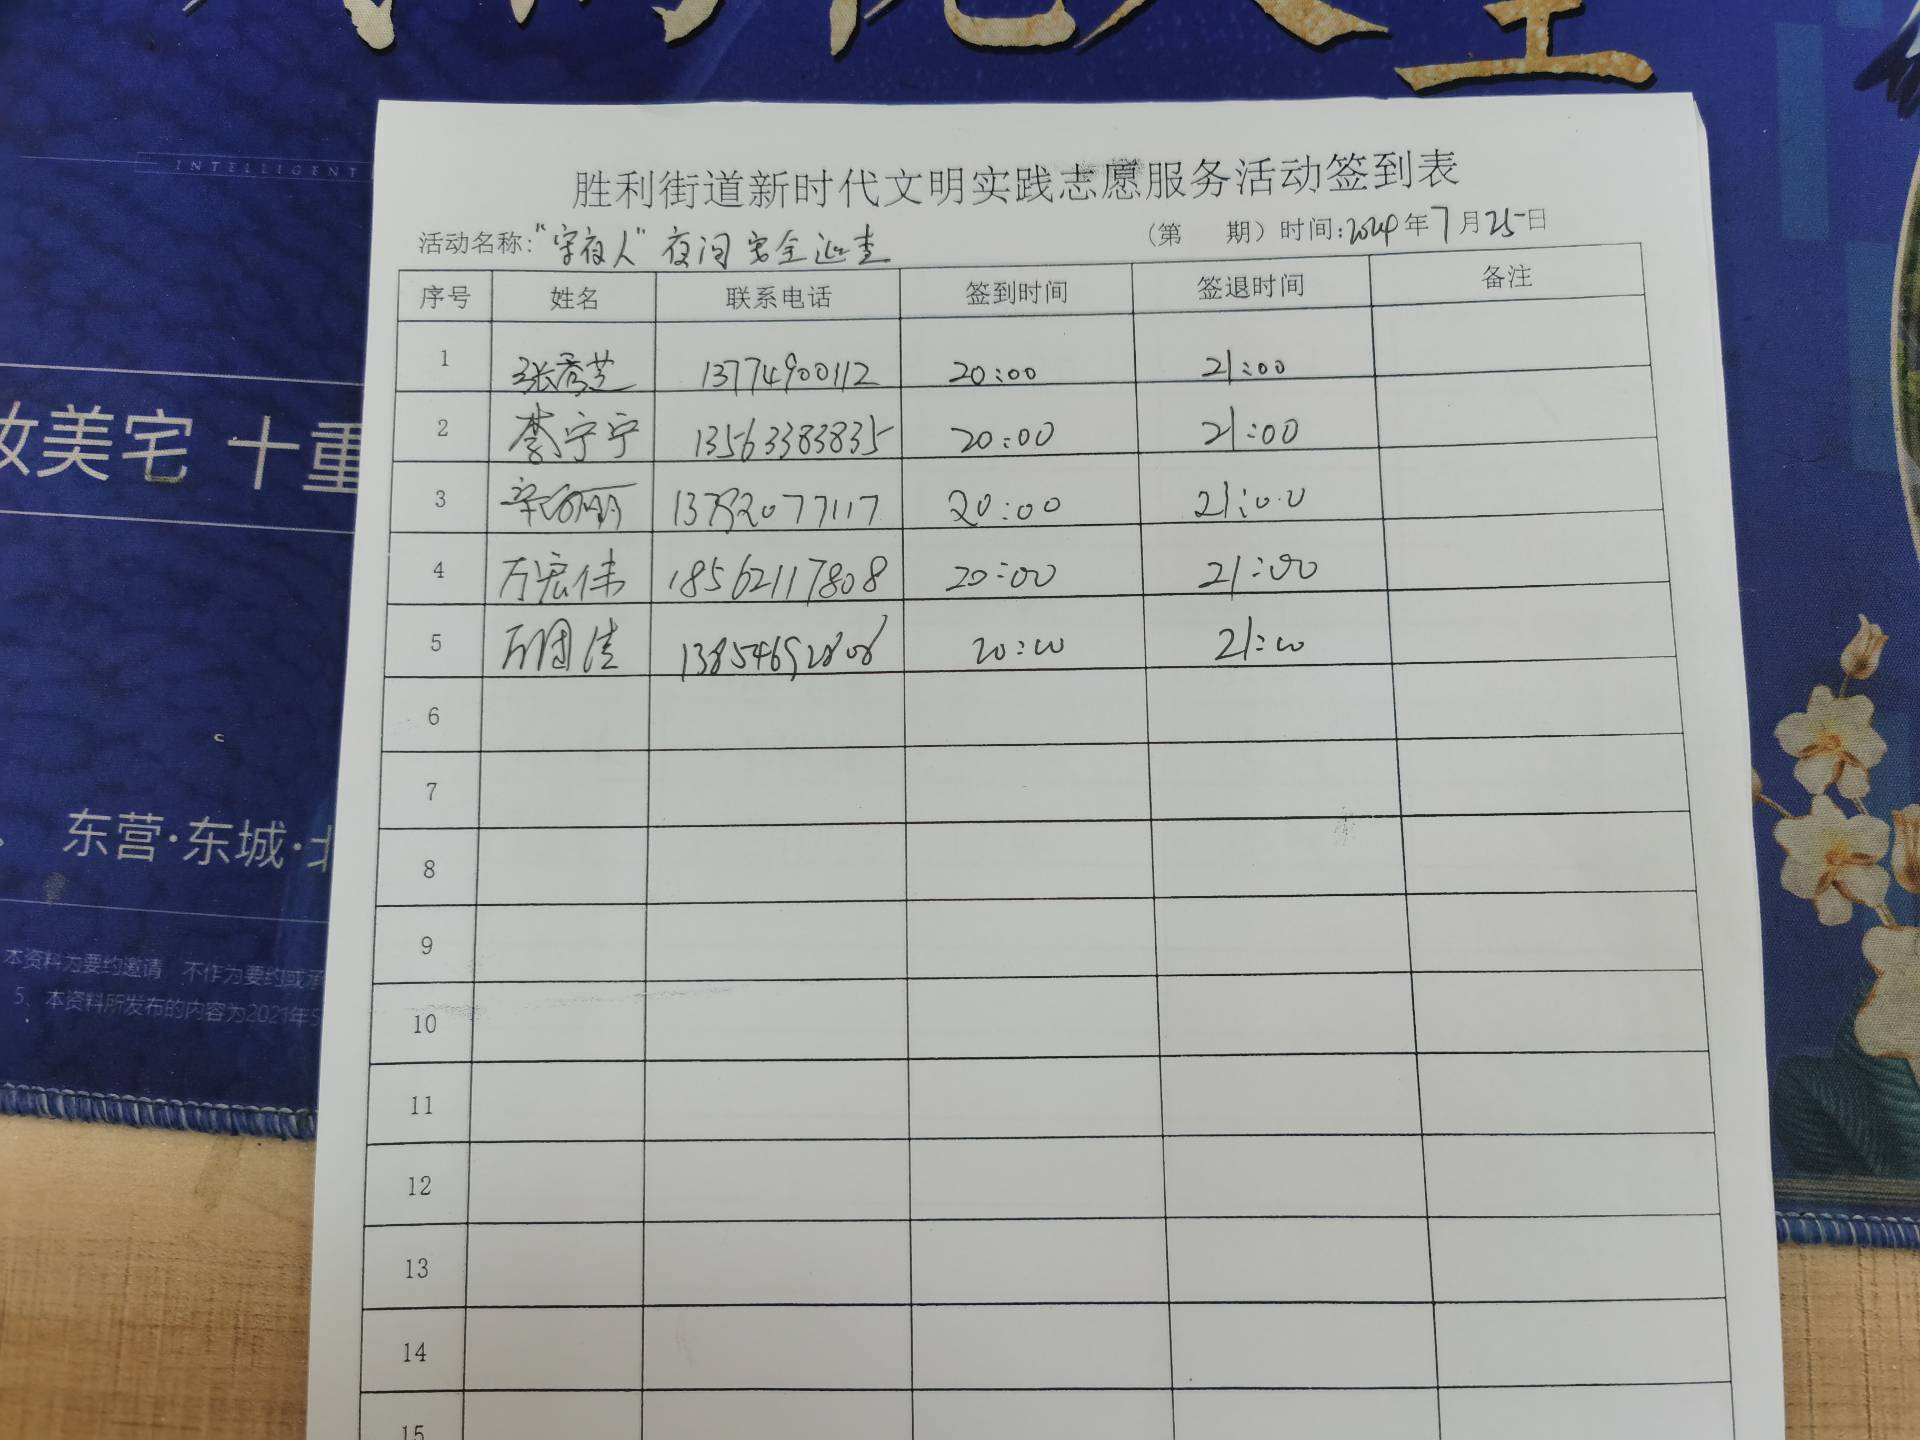 INTELLIGENT
美宅 十重
东营·东城·北
本资料为要约邀请 不作为要约或承
5、本资料所发布的内容为2021年5
胜利街道新时代文明实践志愿服务活动签到表
活动名称:"守夜人"夜间安全巡查 (第 期) 时间:2024年7月25日
序号 姓名 联系电话 签到时间 签退时间 备注
1 张秀芝 13774900112 20:00 21:00
2 李宁宁 13563383835 20:00 21:00
3 13792077117 20:00 21:00
4 万宏伟 18562117808 20:00 21:00
5 20:00 21:00
6
7
8
9
10
11
12
13
14
15